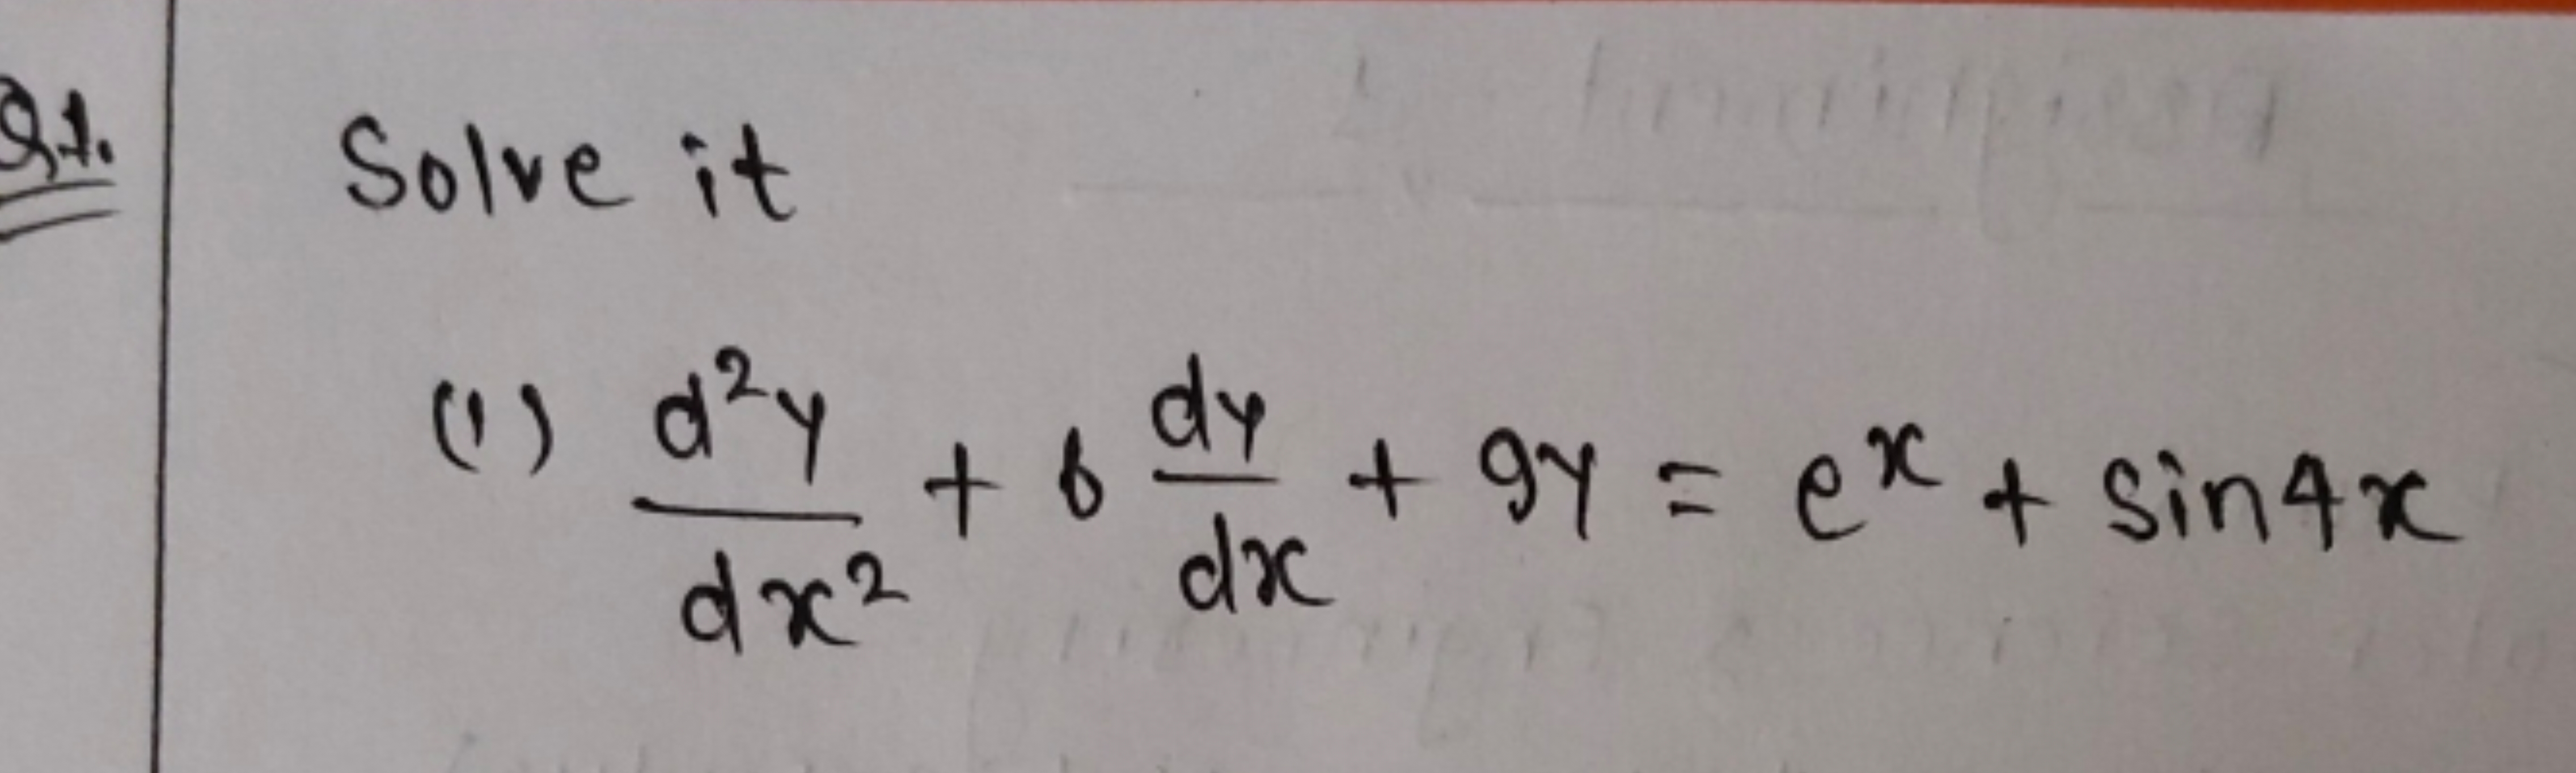 Q.1. Solve it
(1) d²y/dx² + 6 dy/dx + 9y = eˣ + sin4x